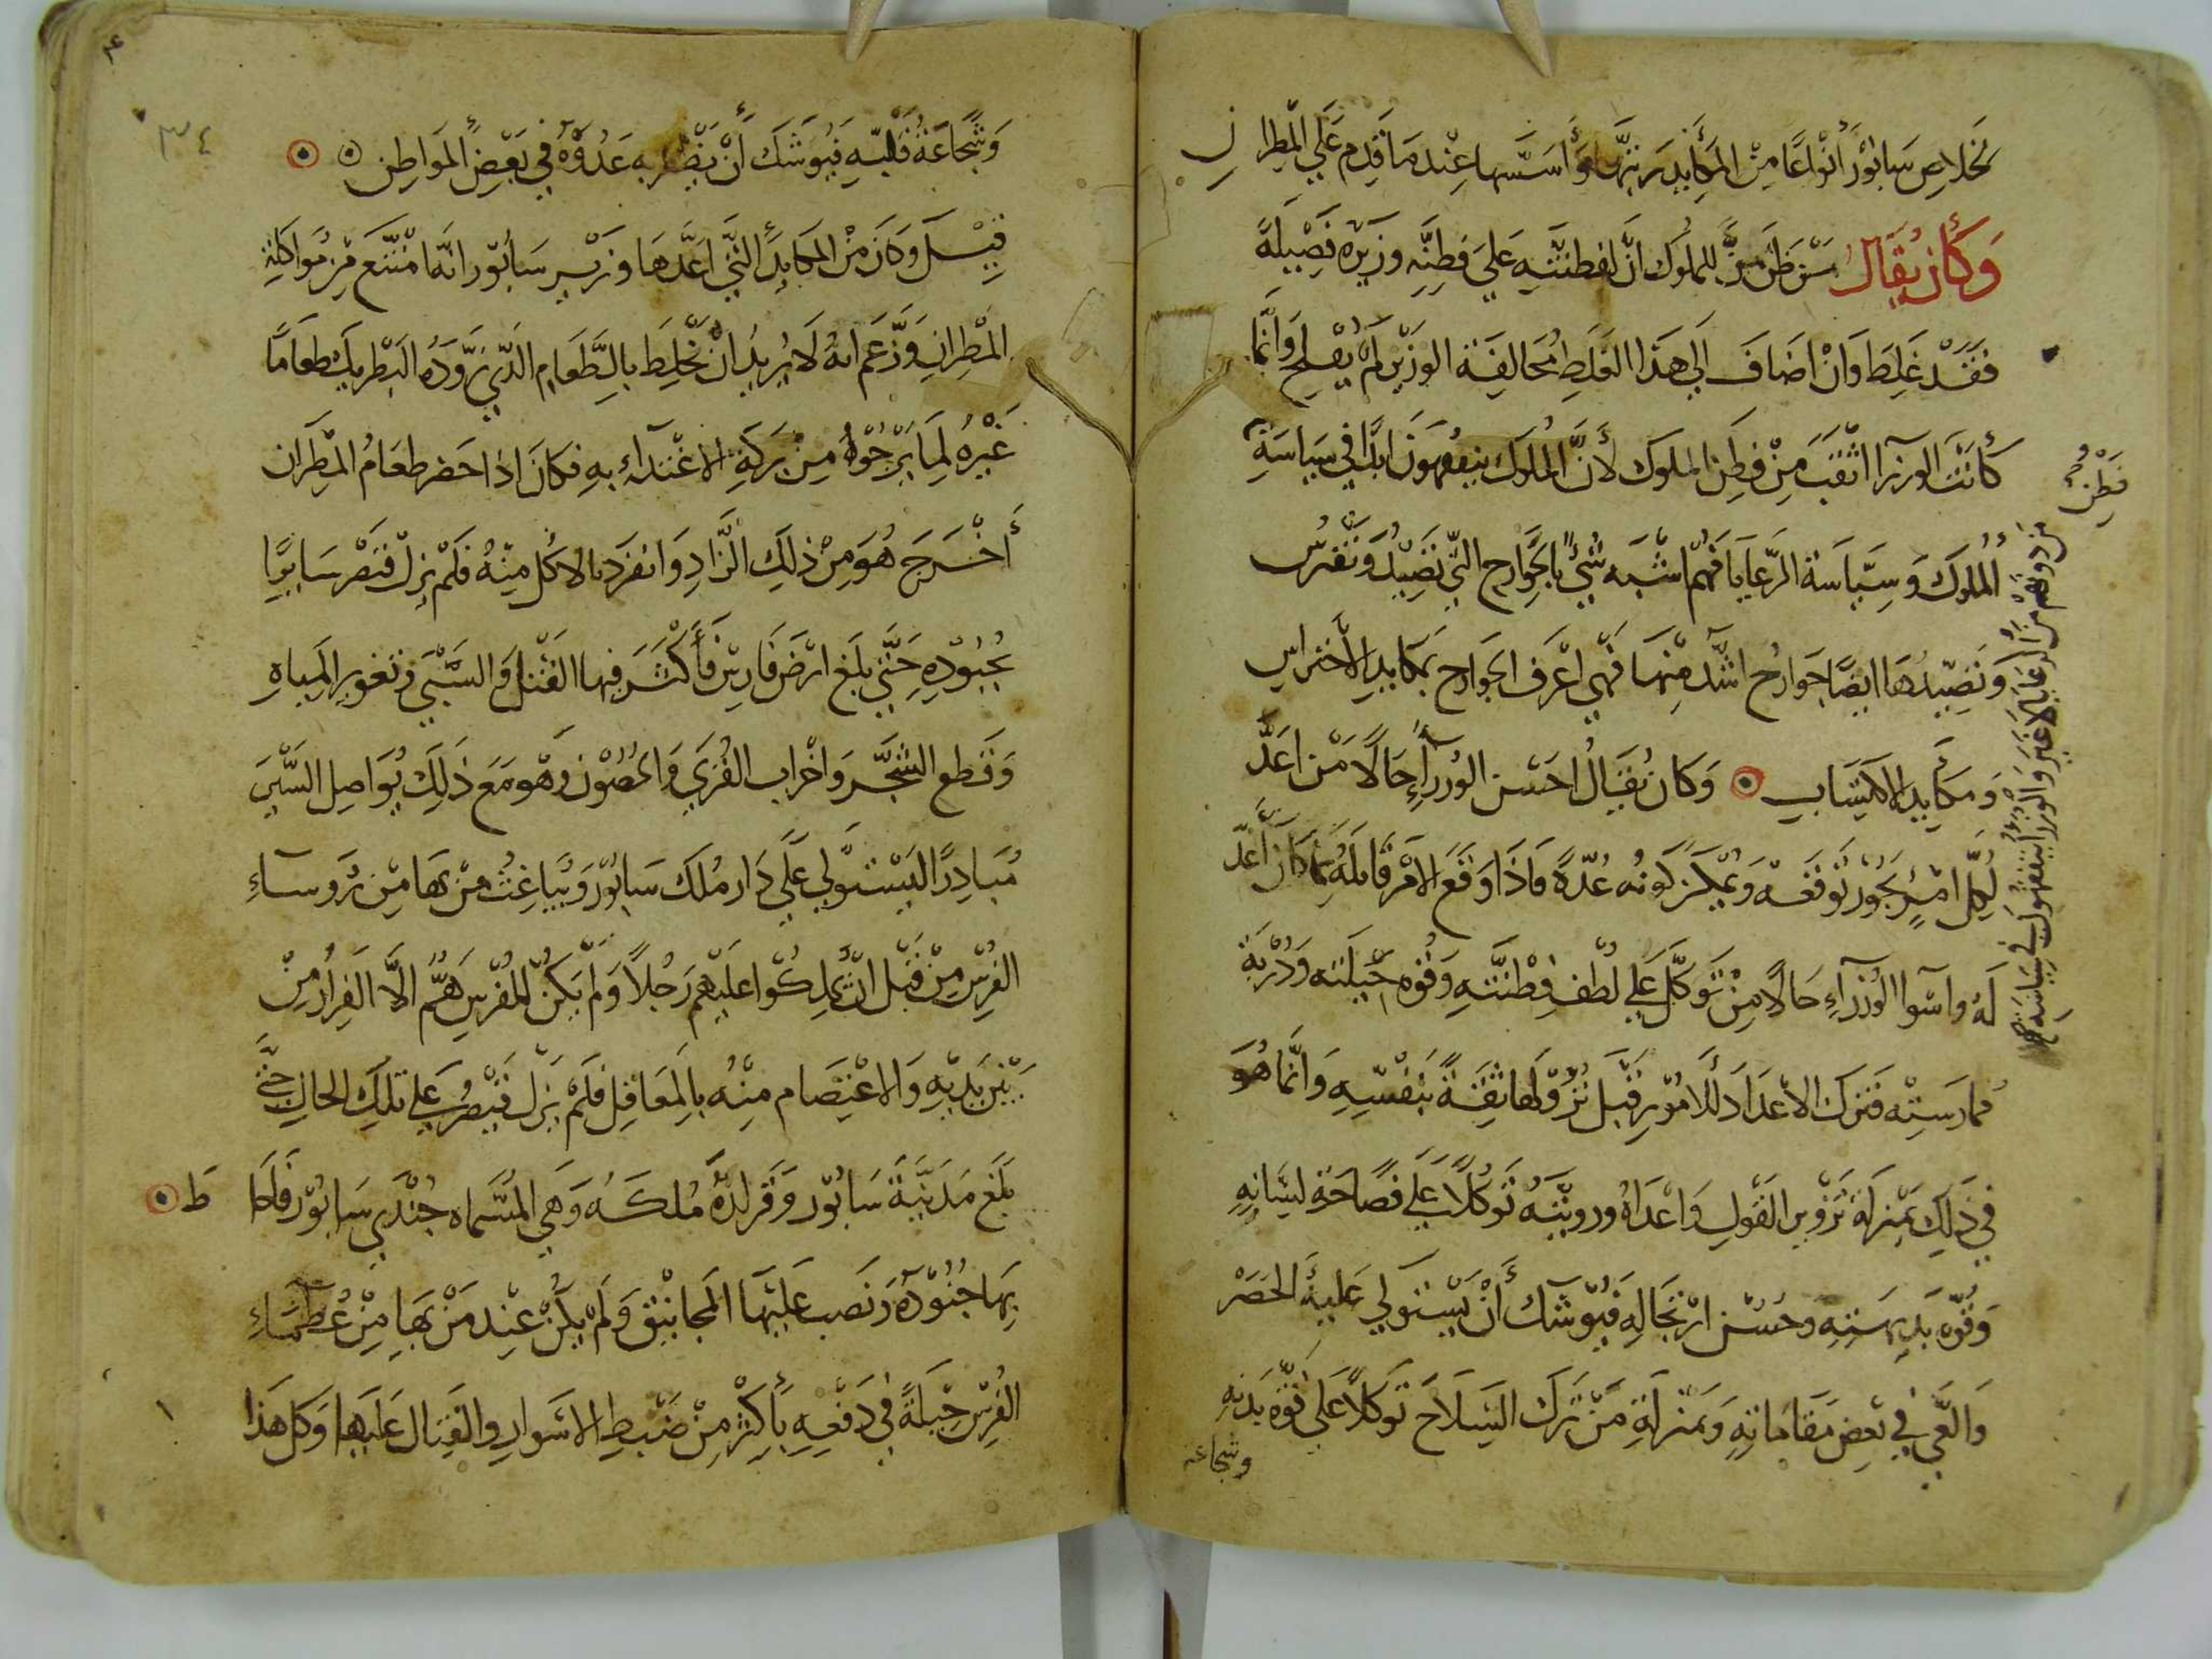 لخلاص سابور أنواعًا من المكايد رتبها وأسسها عندما قدم على المطران
وكان يقال من ظن من الملوك ان لفطنته على فطنه وزيره فضيلة
فقد غلط وان اضاف الى هذا الغلط مخالفة الوزير لم يفلح وانما
كانت الوزرا اثقب من فطن الملوك لأن الملوك يتفقهون ابدًا في سياسة
الملوك وسياسة الرعايا فهم اشبه شئ بالجوارح التي تصيد وتفترس
وتصيدها ايضًا جوارح اشد منها فهي اعرف الجوارح بمكايد الاحتراس
ومكايد الاكتساب وكان يقال احسن الوزراء حالا من اعد
لكل امر يجوز توقعه ويمكن كونه عدة فاذا وقع الامر قابله بما كان أعد
له واسوا الوزراء حالا من توكل على لطف فطنته وقوه حيلته ودربة
ممارسته فترك الاعداد للامور قبل نزولها ثقة بنفسه وانما هو
في ذلك بمنزلة تزوير القول واعداه ورويته توكلا على فصاحة لسانه
وقوه بديهته وحسن ارتجاله فيوشك أن يستولي عليه الحصر
والعي في بعض مقاماته وبمنزلة من ترك السلاح توكلا على قوه بدنه
وشجاعه
فطن
من دونهم من الرعايا لا غير والوزرا يتفقهون في سياسة
٣٤
وشجاعة قلبه فيوشك أن يظفر به عدوه في بعض المواطن
قيل وكان من المكايد التي اعدها وزير سابور انه امتنع من مواكلة
المطران وزعم انه لا يريد ان يخلط بالطعام الذي زوده البطريك طعامًا
غيره لما يرجوه من بركة الاغتداء به فكان اذا احضر طعام المطران
أخرج هو من ذلك الزاد وانفرد بالاكل منه فلم يزل قيصر سايرًا
بجنوده حتى بلغ ارض فارس فأكثر فيها القتل والسبي وتغوير المياه
وقطع الشجر واخراب القرى والحصون وهو مع ذلك يواصل السير
مبادرًا ليستولي على دار ملك سابور ويباغت من بها من روساء
الفرس من قبل ان يملكوا عليهم رجلا ولم يكن للفرس هم الا الفرار من
بين يديه والاعتصام منه بالمعاقل فلم يزل قيصر على تلك الحال حتى
بلغ مدينة سابور وقرارة ملكه وهي المسماه جندي سابور فاحاط
بها جنوده ونصب عليها المجانيق ولم يكن عند من بها من عظماء
الفرس حيلة في دفعه بأكثر من ضبط الاسوار والقتال عليها وكل هذا